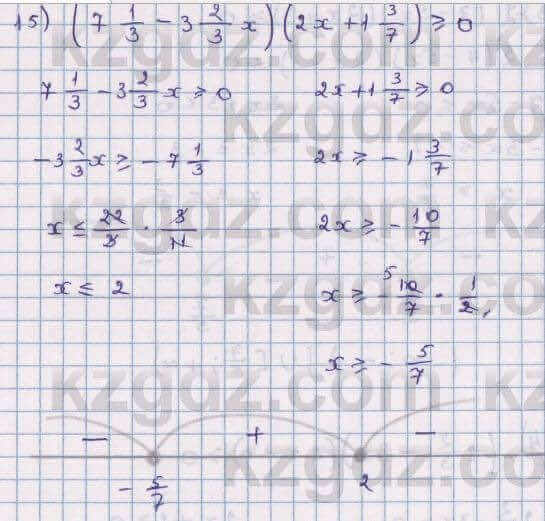 15) (7 1/3 - 3 2/3 x)(2x + 1 3/7) ≥ 0
7 1/3 - 3 2/3 x ≥ 0 2x + 1 3/7 ≥ 0
-3 2/3 x ≥ -7 1/3 2x ≥ -1 3/7
x ≤ 22/3 · 3/11 2x ≥ -10/7
x ≤ 2 x ≥ -10/7 · 1/2, 5
x ≥ -5/7
- + -
-5/7 2
kzgdz.com